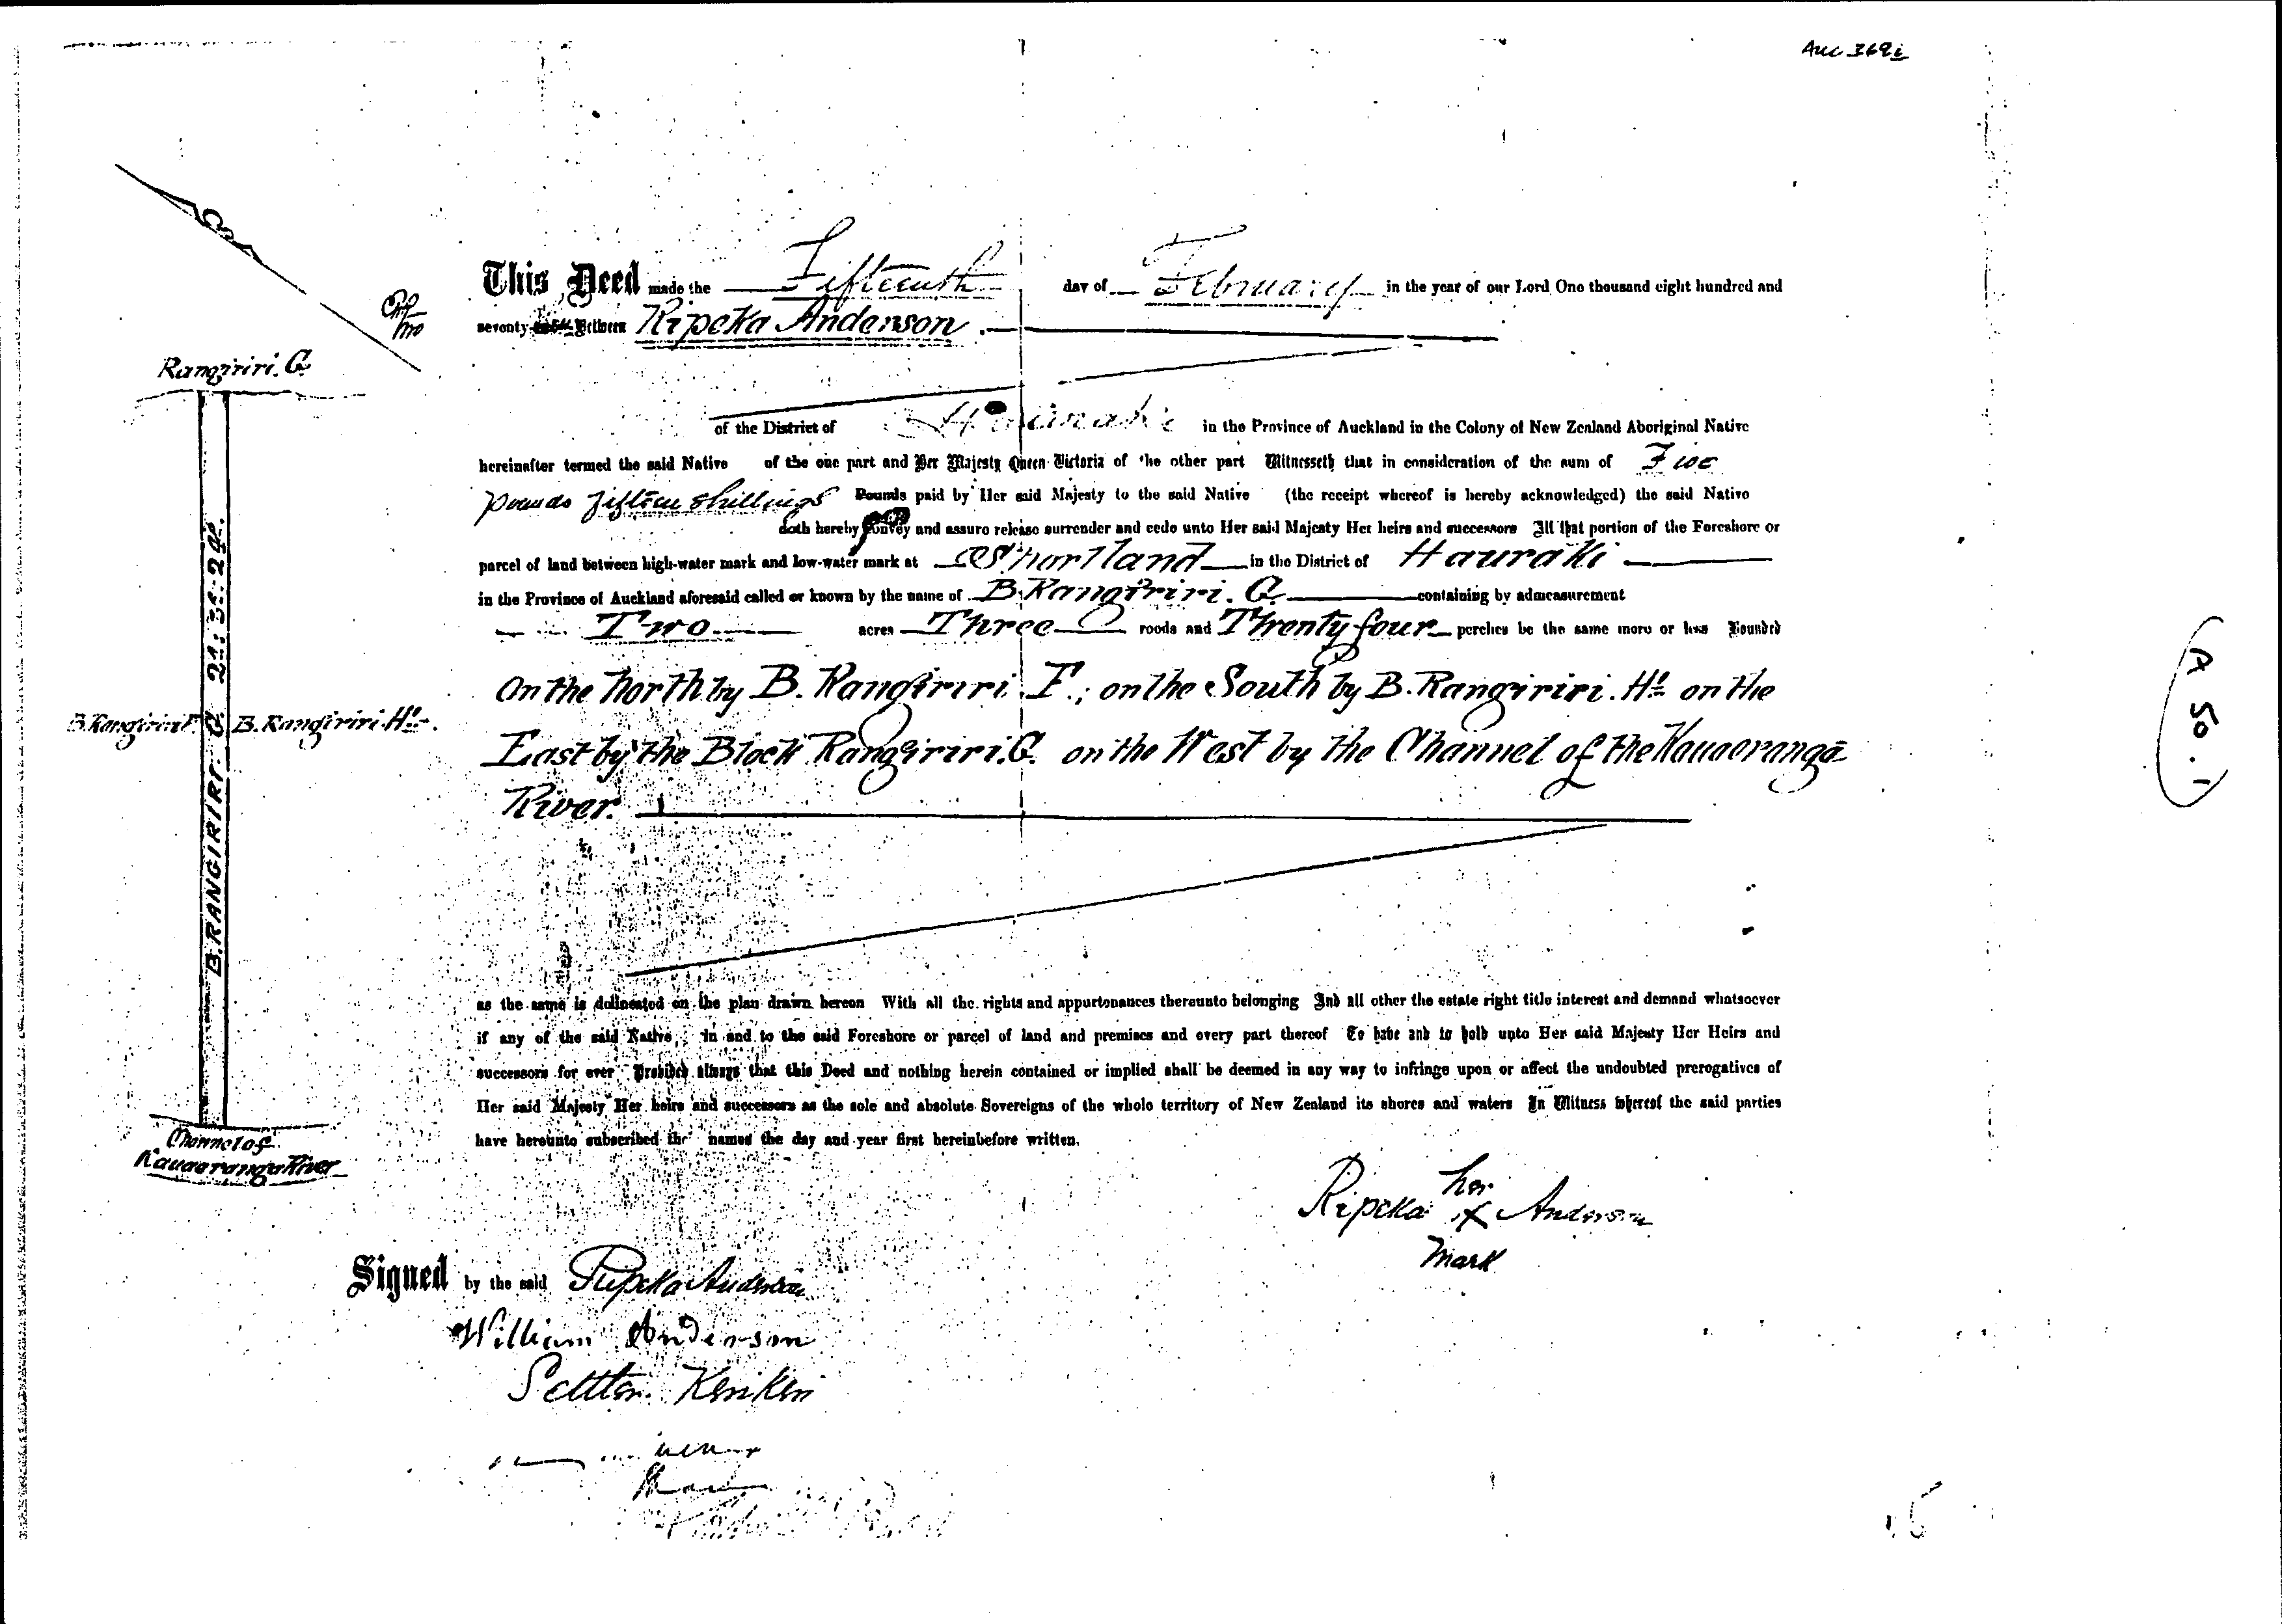 Auc 369i
This Deed made the Fifteenth day of February in the year of our Lord One thousand eight hundred and
seventy Between Ripeka Anderson.
of the District of Hauraki in the Province of Auckland in the Colony of New Zealand Aboriginal Native
hereinafter termed the said Native of the one part and Her Majesty Queen Victoria of the other part Witnesseth that in consideration of the sum of Five
pounds fifteen shillings Pounds paid by Her said Majesty to the said Native (the receipt whereof is hereby acknowledged) the said Native
doth hereby convey and assure release surrender and cede unto Her said Majesty Her heirs and successors All that portion of the Foreshore or
parcel of land between high-water mark and low-water mark at Shortland in the District of Hauraki
in the Province of Auckland aforesaid called or known by the name of B. Rangiriri. G. containing by admeasurement
Two acres Three roods and Twenty four perches be the same more or less Bounded
On the North by B. Rangiriri F.; on the South by B. Rangiriri. Ho. on the
East by the Block Rangiriri. G. on the West by the Channel of the Kauaeranga
River.
as the same is delineated on the plan drawn hereon With all the rights and appurtenances thereunto belonging And all other the estate right title interest and demand whatsoever
if any of the said Native in and to the said Foreshore or parcel of land and premises and every part thereof To have and to hold unto Her said Majesty Her Heirs and
successors for ever Provided always that this Deed and nothing herein contained or implied shall be deemed in any way to infringe upon or affect the undoubted prerogatives of
Her said Majesty Her heirs and successors as the sole and absolute Sovereigns of the whole territory of New Zealand its shores and waters In Witness whereof the said parties
have hereunto subscribed the names the day and year first hereinbefore written.
Rangiriri. G.
B. RANGIRIRI. G. 2A: 3R: 24P.
B. Rangiriri F.
B. Rangiriri. Ho.
Channel of
Kauaeranga River
Ripeka her x Anderson
mark
Signed by the said Ripeka Anderson
William Anderson
A 50.1